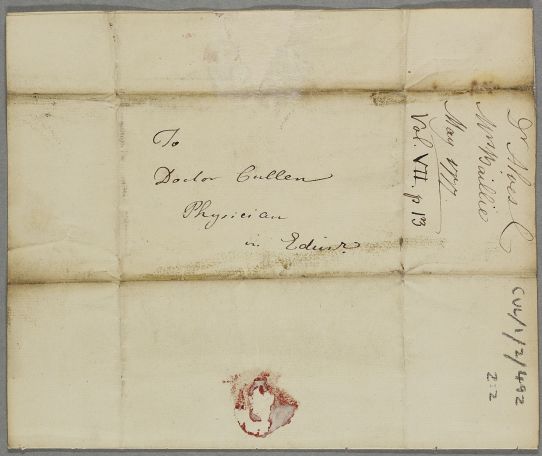 To
Doctor Cullen
Physician
in Edinr.
Dr Alves C
Mrs Baillie
May 1777
Vol. VII. p 13
CUL/1/2/492
2:2